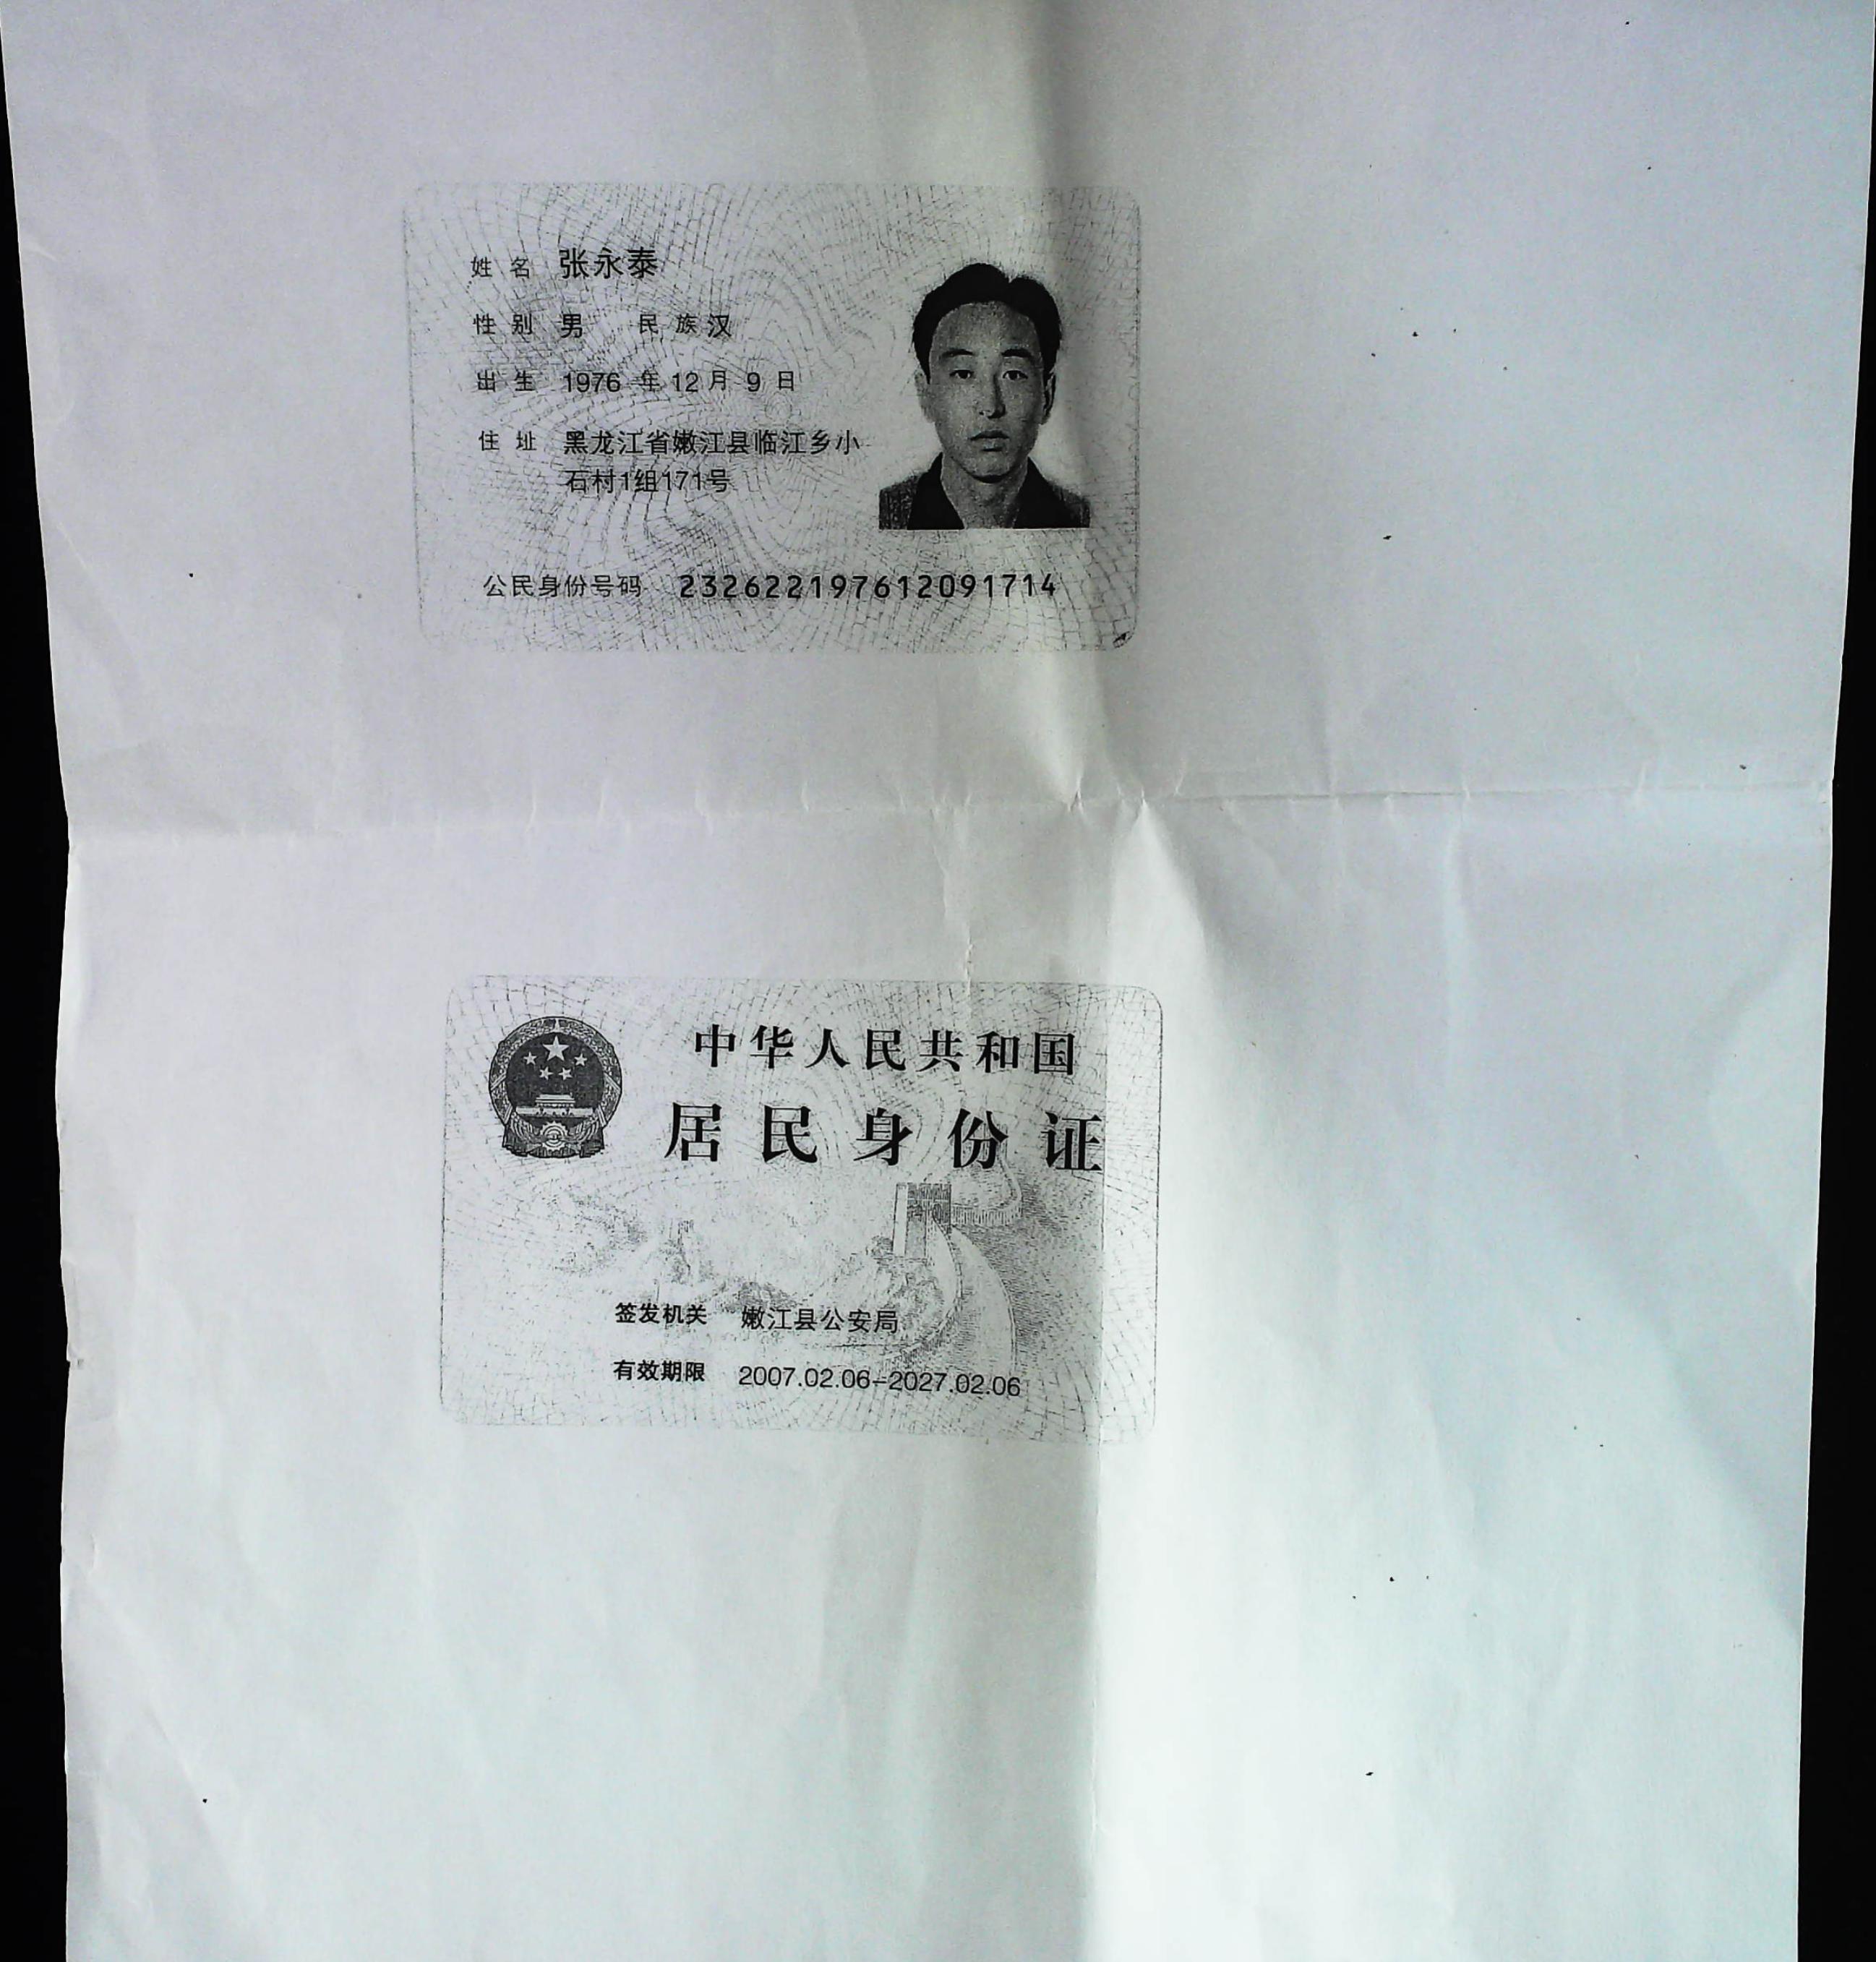 姓名 张永泰
性别 男 民族 汉
出生 1976 年 12 月 9 日
住址 黑龙江省嫩江县临江乡小
石村1组171号
公民身份号码 232622197612091714
中华人民共和国
居民身份证
签发机关 嫩江县公安局
有效期限 2007.02.06-2027.02.06